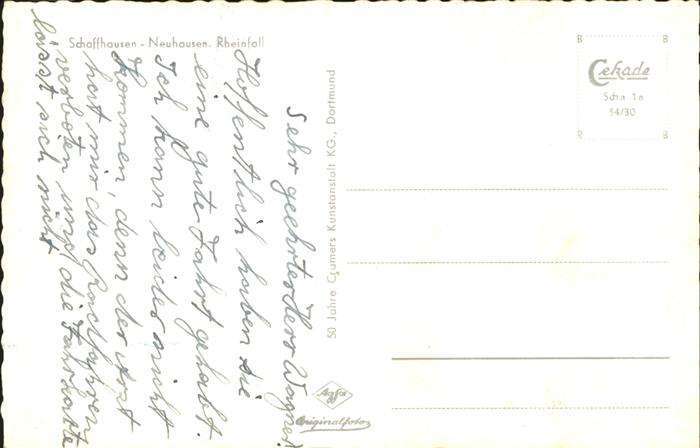 Schaffhausen - Neuhausen. Rheinfall
Sehr geehrter Herr Wagner!
Hoffentlich haben Sie
eine gute Fahrt gehabt.
Ich kann leider nicht
kommen, denn der Arzt
hat mir das Radfahren
verboten und die Fahrkarte
lässt sich nicht
50 Jahre Czumers Kunstanstalt KG., Dortmund
Agfa
Originalfoto
B B
Cekade
Scha 1a
54/30
R B